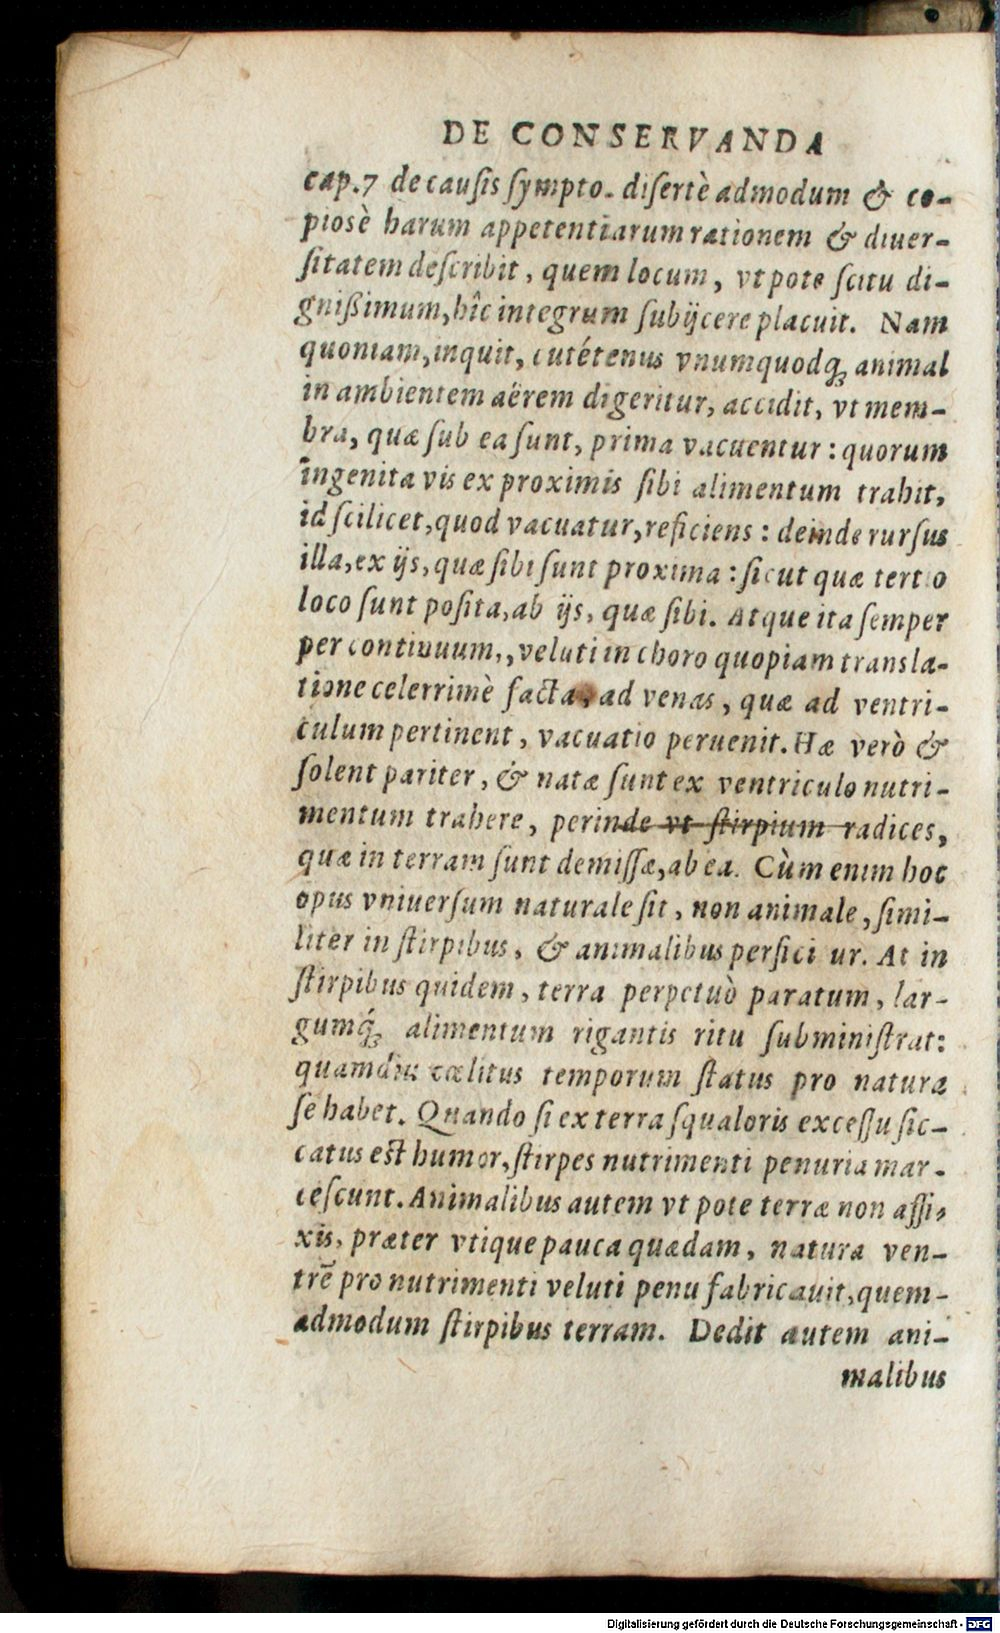 DE CONSERVANDA
cap.7 de causis sympto. disertè admodum & co-
piosè harum appetentiarum rationem & diuer-
sitatem describit, quem locum, vt pote scitu di-
gnißimum, hîc integrum subijcere placuit. Nam
quoniam, inquit, cutétenus vnumquodq́; animal
in ambientem aërem digeritur, accidit, vt mem-
bra, quæ sub ea sunt, prima vacuentur: quorum
ingenita vis ex proximis sibi alimentum trahit,
id scilicet, quod vacuatur, reficiens: deinde rursus
illa, ex ijs, quæ sibi sunt proxima: sicut quæ tertio
loco sunt posita, ab ijs, quæ sibi. Atque ita semper
per continuum,, veluti in choro quopiam transla-
tione celerrimè facta, ad venas, quæ ad ventri-
culum pertinent, vacuatio peruenit. Hæ verò &
solent pariter, & natæ sunt ex ventriculo nutri-
mentum trahere, perinde vt stirpium radices,
quæ in terram sunt demissæ, ab ea. Cùm enim hoc
opus vniuersum naturale sit, non animale, simi-
liter in stirpibus, & animalibus perfici ur. At in
stirpibus quidem, terra perpetuò paratum, lar-
gumq́; alimentum rigantis ritu subministrat:
quamdiu cælitus temporum status pro natura
se habet. Quando si ex terra squaloris excessu sic-
catus est humor, stirpes nutrimenti penuria mar-
cescunt. Animalibus autem vt pote terræ non affi-
xis, præter vtique pauca quædam, natura ven-
trē pro nutrimenti veluti penu fabricauit, quem-
admodum stirpibus terram. Dedit autem ani-
malibus
Digitalisierung gefördert durch die Deutsche Forschungsgemeinschaft - DFG